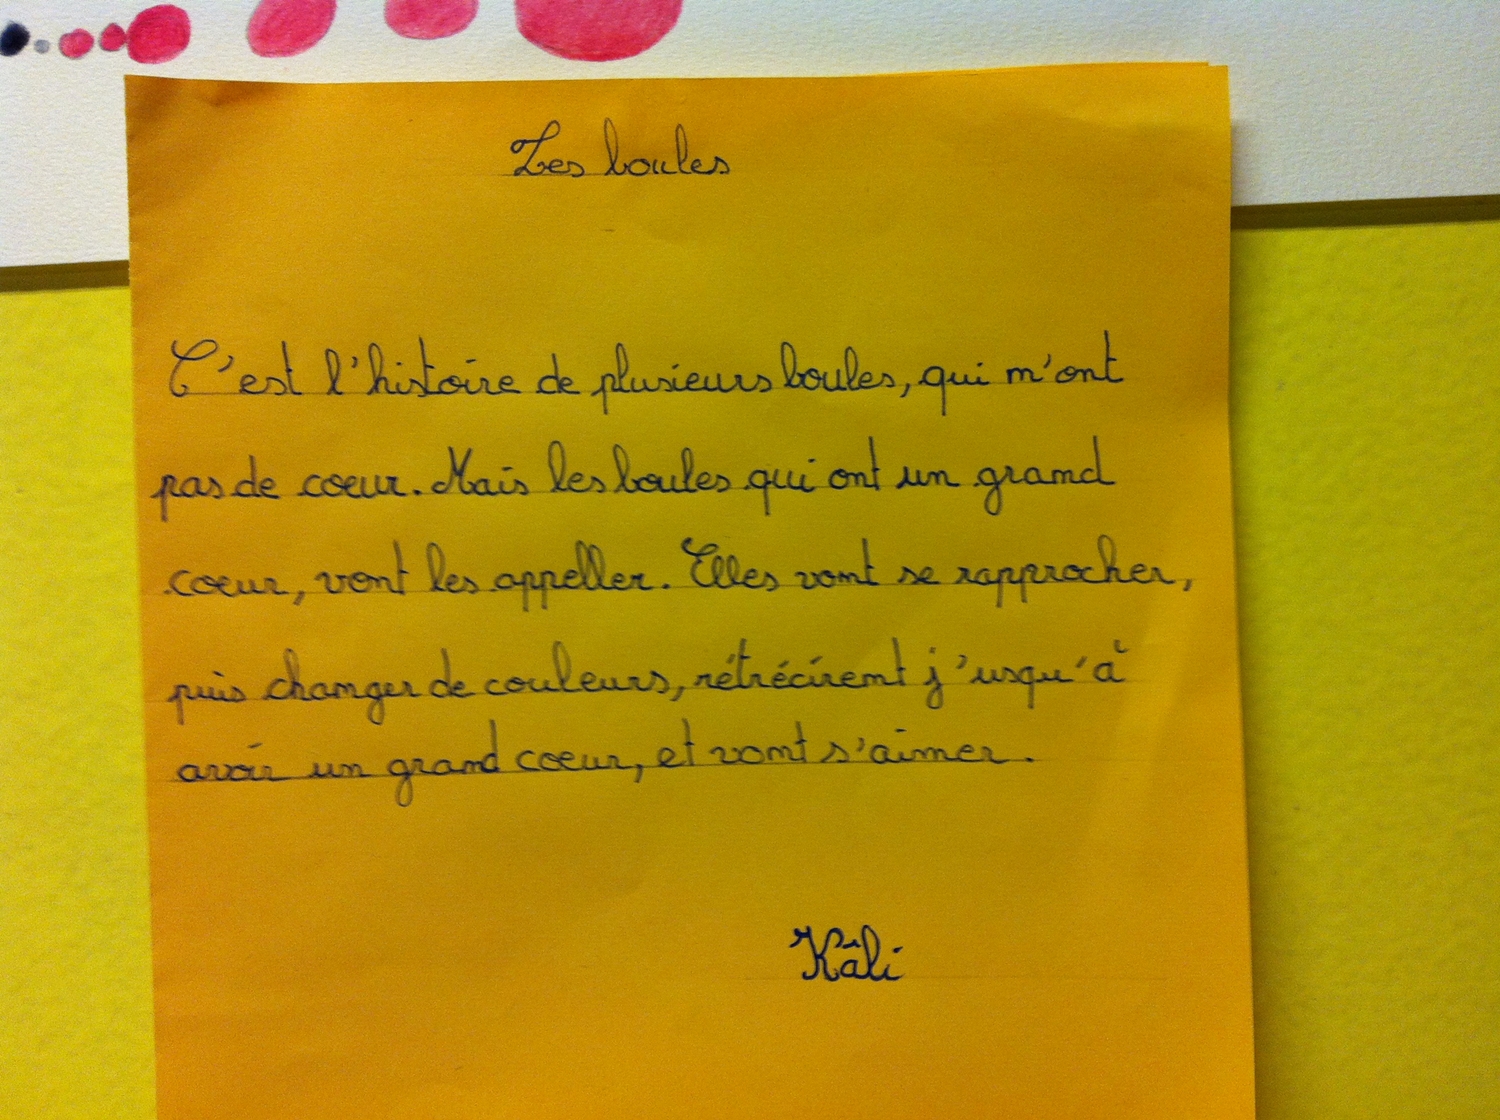 Les boules
C'est l'histoire de plusieurs boules, qui m'ont
pas de coeur. Mais les boules qui ont un grand
coeur, vont les appeller. Elles vont se rapprocher,
puis changer de couleurs, rétrécirent j'usqu'à
avoir un grand coeur, et vont s'aimer.
Kâli